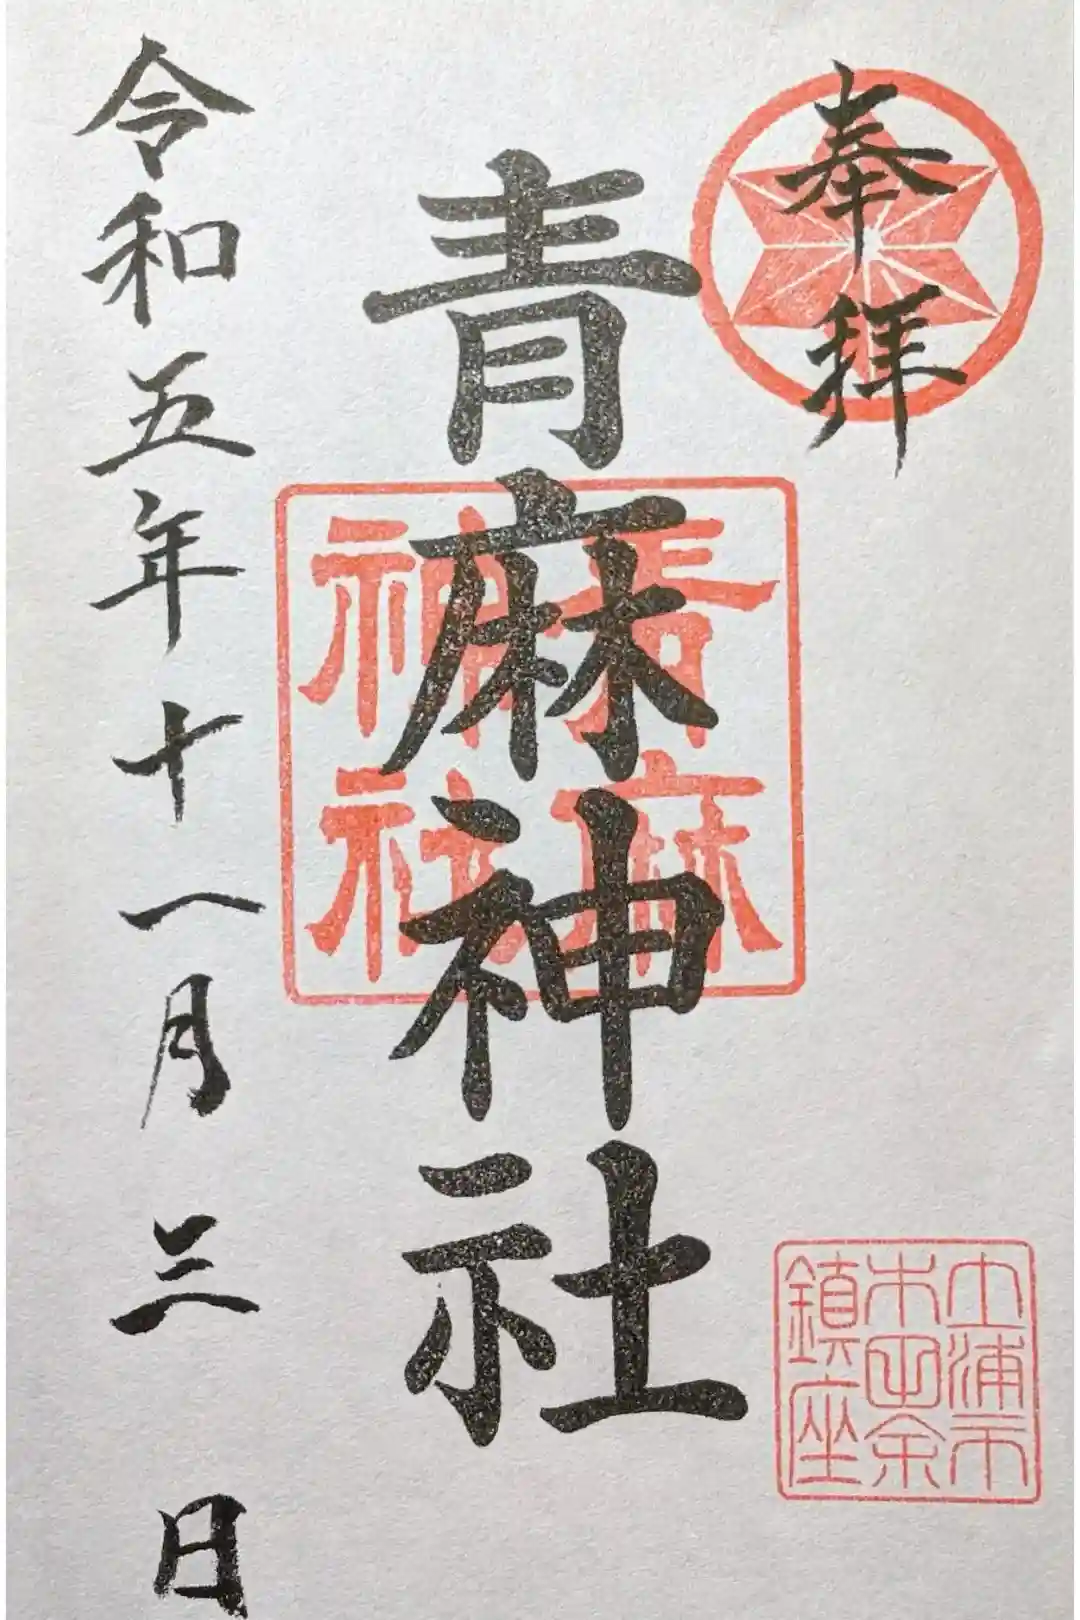 奉拝
青麻神社
青麻
神社
土浦市
木田余
鎮座
令和五年十一月三日